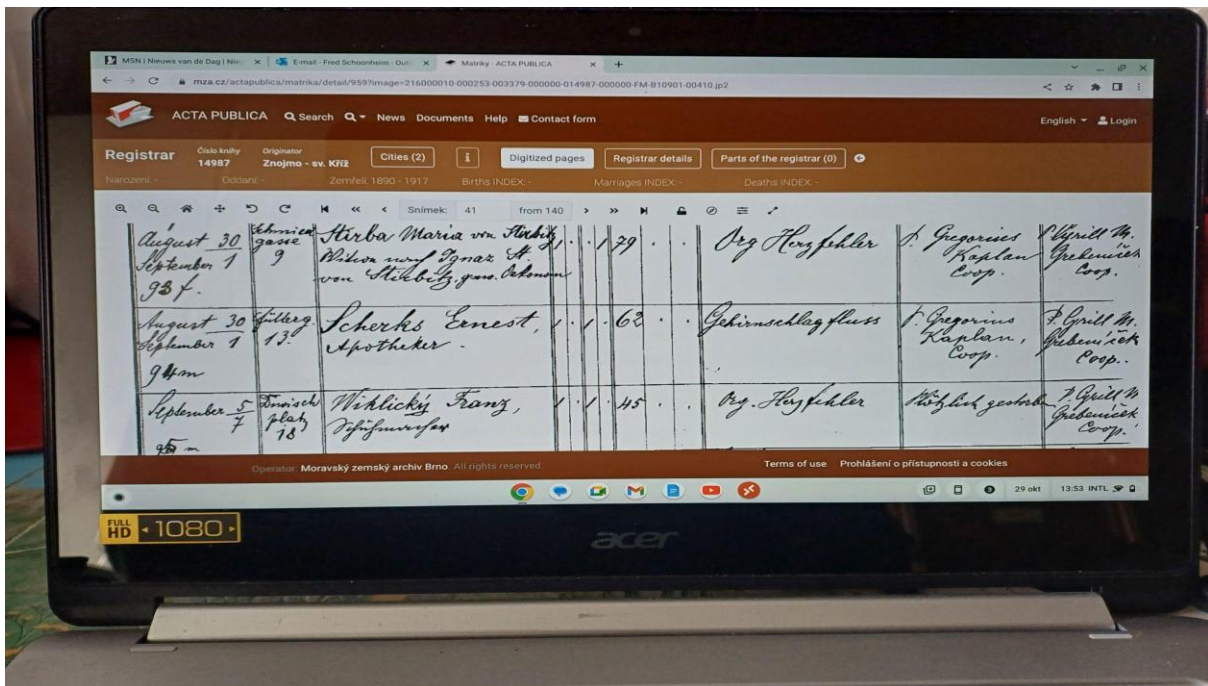 MSN | Nieuws van de Dag | Nie
E-mail - Fred Schoonheim - Out
Matriky - ACTA PUBLICA
mza.cz/actapublica/matrika/detail/959?image=216000010-000253-003379-000000-014987-000000-FM-B10901-00410.jp2
ACTA PUBLICA Search News Documents Help Contact form English Login
Registrar
Číslo knihy
14987
Originator
Znojmo - sv. Kříž
Cities (2)
i
Digitized pages
Registrar details
Parts of the registrar (0)
Narození: - Oddaní: - Zemřelí: 1890 - 1917 Births INDEX: - Marriages INDEX: - Deaths INDEX: -
Snímek: 41 from 140
August 30
September 1
93 f.
gasse
9
Stirba Maria von
Witwe nach Ignaz St.
von
1 1 79
Org Herzfehler
P. Gregorius
Kaplan
Coop.
P. Cyrill M.
Grebeníček
Coop.
August 30
September 1
94 m
13.
Scherks Ernest,
Apotheker.
1 1 62
Gehirnschlagfluss
P. Gregorius
Kaplan,
Coop.
P. Cyrill M.
Grebeníček
Coop.
September 5
7
95 m
platz
18
Wiklický Franz,
Schuhmacher
1 1 45
Org. Herzfehler
Plötzlich gestorben
P. Cyrill M
Grebeníček
Coop.
Operator: Moravský zemský archiv Brno. All rights reserved.
Terms of use Prohlášení o přístupnosti a cookies
29 okt 13:53 INTL
FULL HD 1080
acer